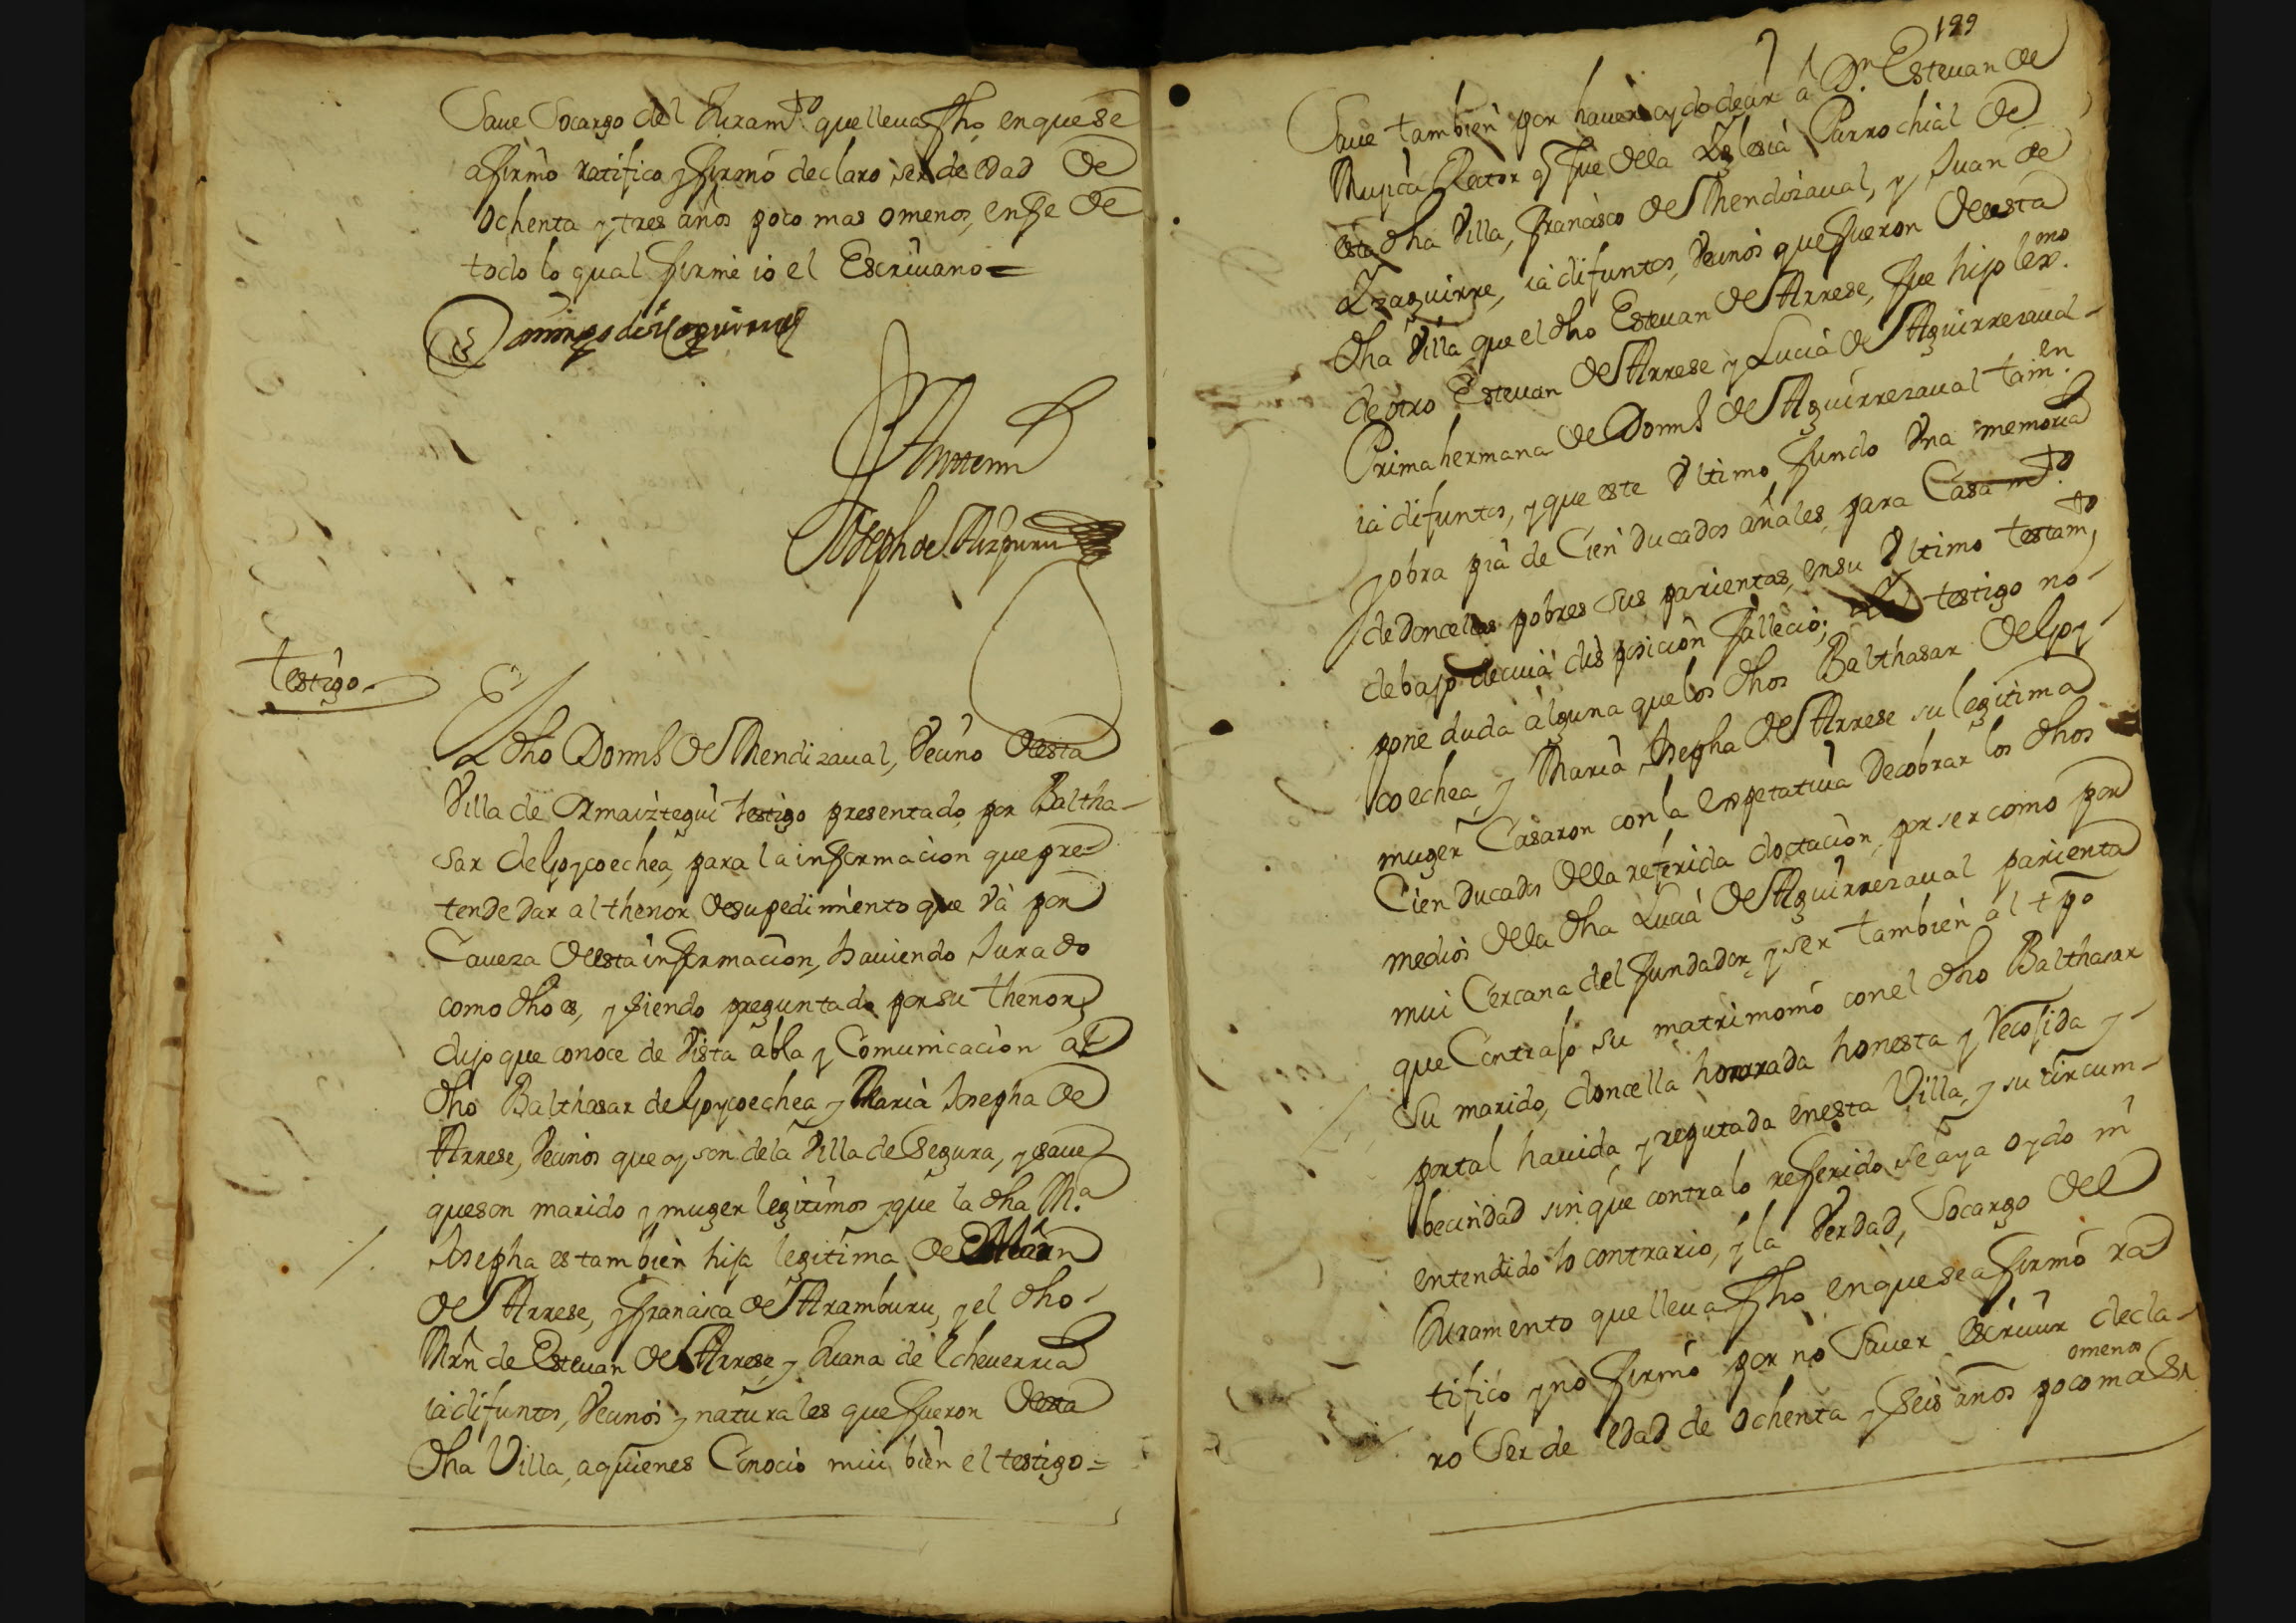 Saue Socargo del Juram.to que lleua fho en que se
afirmò ratifico y firmó declarò ser de edad de
ochenta y tres años poco mas omenos, enfe de
todo lo qual firmè io el Escriuano =
Domingo de
Antemi
Joseph de Aizpuru
Testigo
El dho Dom.s de Mendizaual, Vecino de esta
Villa de Ormaiztegui testigo presentado por Baltha-
sar de Goycoechea, para la informacion que pre-
tende dar al thenor de su pedimiento que và por
Caueza de esta informacion, hauiendo Jurado
como dho es, y siendo preguntado por su thenor,
dijo que conoce de vista abla y Comunicaciòn al
dho Balthasar de Goycoechea y Marià Josepha de
Arrese, Vecinos que oy son dela Villa de Segura, y saue
que son marido y muger legitimos, y que la dha M.a
Josepha es tambièn hija legitima de Mărn
de Arrese, y Francisca de Aramburu, y el dho
Mrn de Esteuan de Arrese, y Juana de Echeuerria
ia difuntos, Vecinos y naturales que fueron de esta
dha Villa, a quienes Conociò mui bièn el testigo =
199
Saue tambièn por hauer oydo deçir à D.n Esteuan de
Mugica Rector q fue de la Iglesia Parrochial de
esta dha Villa, Francisco de Mendizaual, y Juan de
Izaguirre, ia difuntos, Vecinos que fueron de esta
dha Villa que el dho Esteuan de Arrese, fue hijo lex.mo
de otro Esteuan de Arrese y Lucià de Aguirrezaual
Prima hermana de Dom.s de Aguirrezaual tam.en
ia difuntos, y que este ultimo fundo Vna memoria
y obra pia de Cien ducados añales, para Casam.to
de Doncellas pobres sus parientas, en su Vltimo testam.to
debajo de cuià disposiciòn falleciò; el testigo no
pone duda alguna que los dhos Balthasar de Goy-
coechea, y Marià Josepha de Arrese su legitima
muger Casaron con la expetatiua de cobrar los dhos
Cien ducados de la referida doctaciòn, por ser como por
medios de la dha Lucià de Aguirrezaual parienta
mui Cercana del fundador, y ser tambièn al tpo
que Contrajo su matrimonió con el dho Balthasar
su marido, doncella honrrada honesta y recojida y
por tal hauida y reputada en esta Villa, y su circum-
becindad sin que contra lo referido se aya oydo ni
entendido lo contrario, y la Verdad, Socargo del
Juramento que lleua fho en que se afirmó ra-
tificó y nò firmó por nò sauer escriuir decla-
ro ser de edad de ochenta y seis años poco mas
omenos